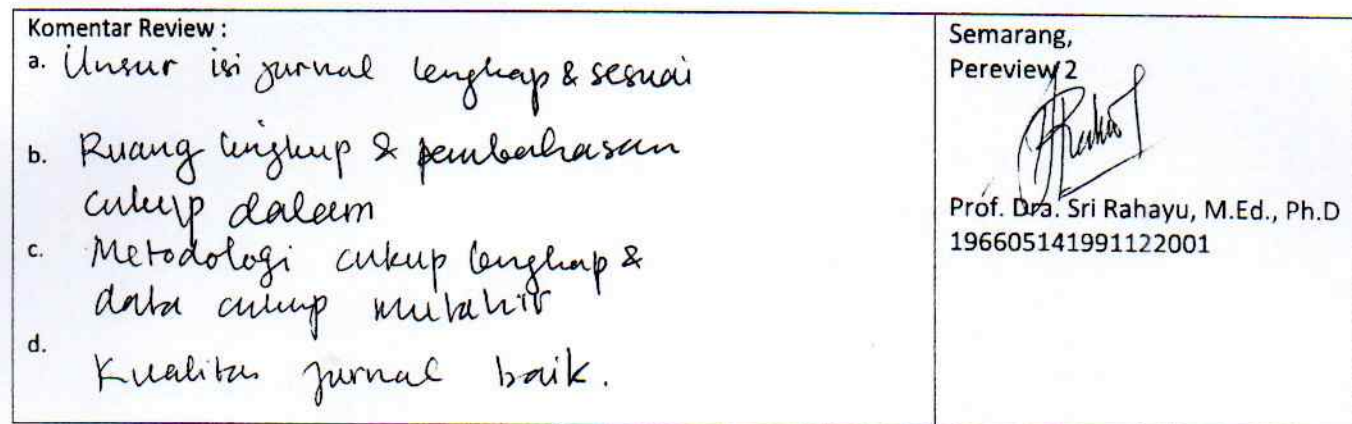 Komentar Review :
a. Unsur isi jurnal lengkap & sesuai
b. Ruang lingkup & pembahasan
cukup dalam
c. Metodologi cukup lengkap &
data cukup mutahir
d.
Kualitas jurnal baik.
Semarang,
Pereview 2
Prof. Dra. Sri Rahayu, M.Ed., Ph.D
196605141991122001